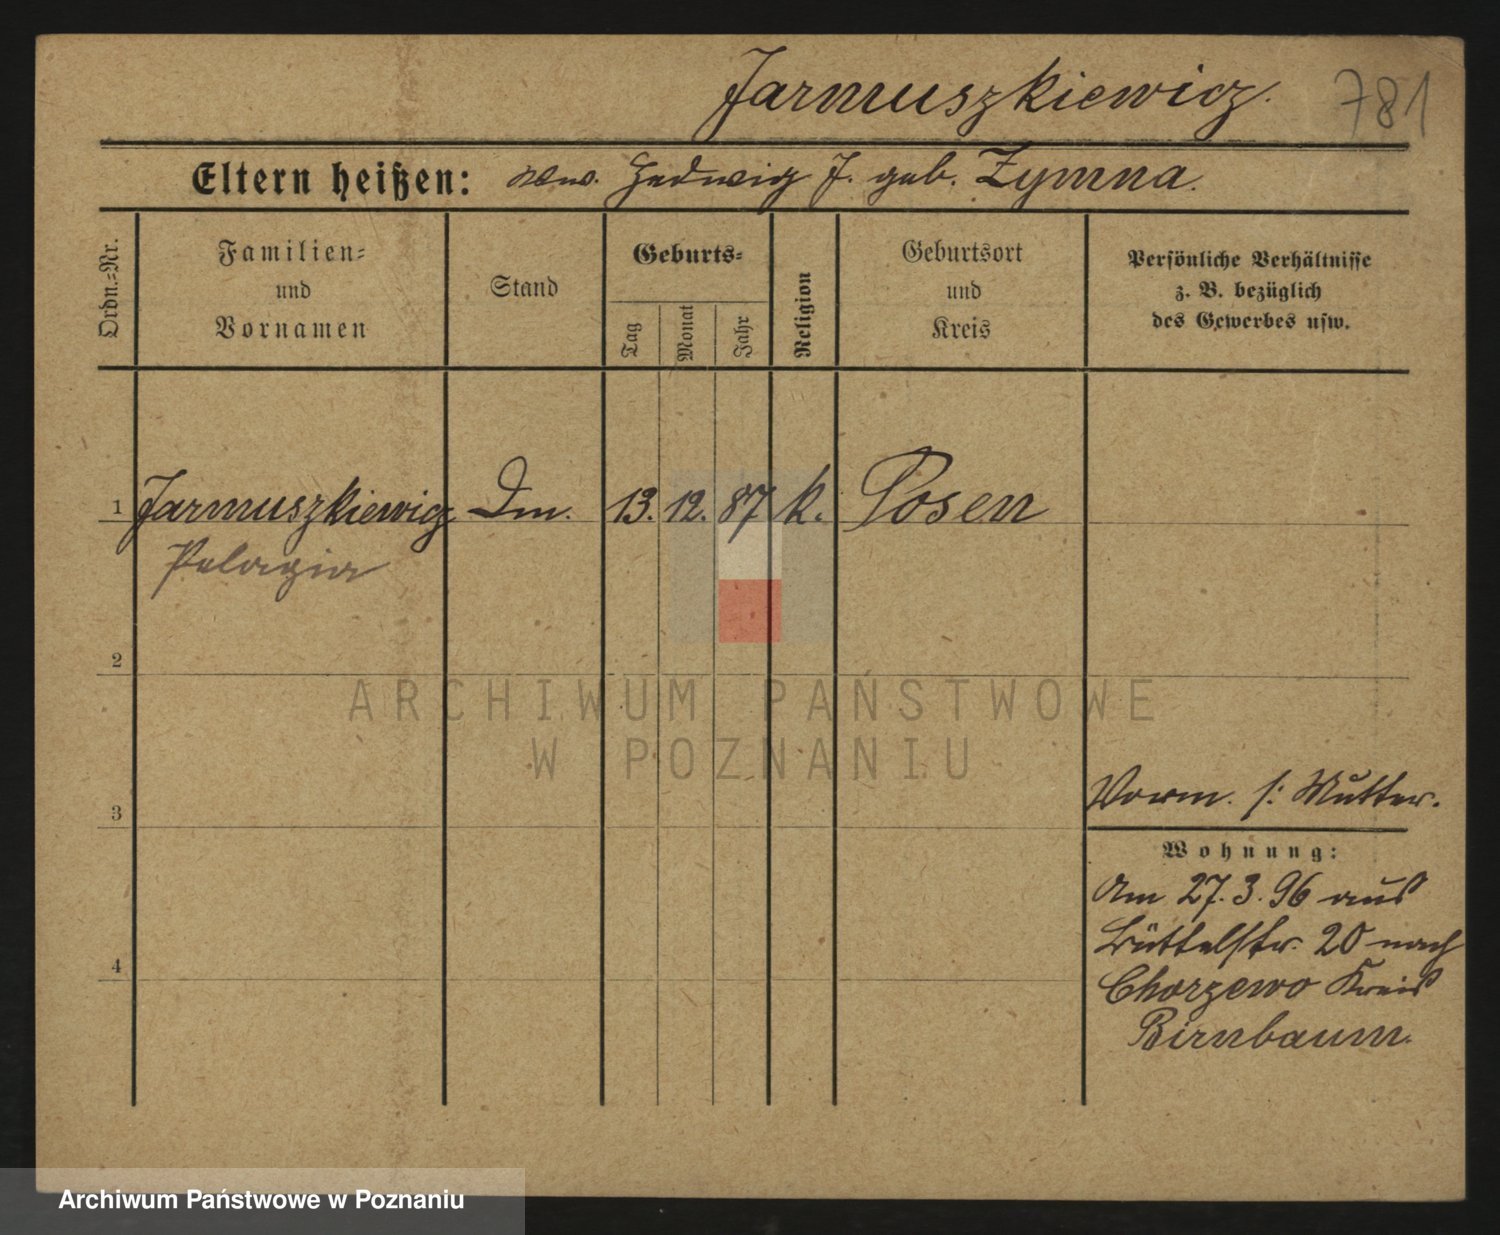 Jarmuszkiewicz.
781
Eltern heißen: verw. Hedwig J. geb. Zymna.
Ordn.=Nr.
Familien=
und
Vornamen
Stand
Geburts=
Tag
Monat
Jahr
Religion
Geburtsort
und
Kreis
Persönliche Verhältnisse
z. B. bezüglich
des Gewerbes usw.
1 Jarmuszkiewicz 13. 12. 87 k. Posen
Pelagia
2
ARCHIWUM PAŃSTWOWE
W POZNANIU
3
Vorm. s: Mutter.
Wohnung:
Am 27.3.96 aus
Büttelstr. 20 nach
4
Chorzewo Kreis
Birnbaum.
Archiwum Państwowe w Poznaniu